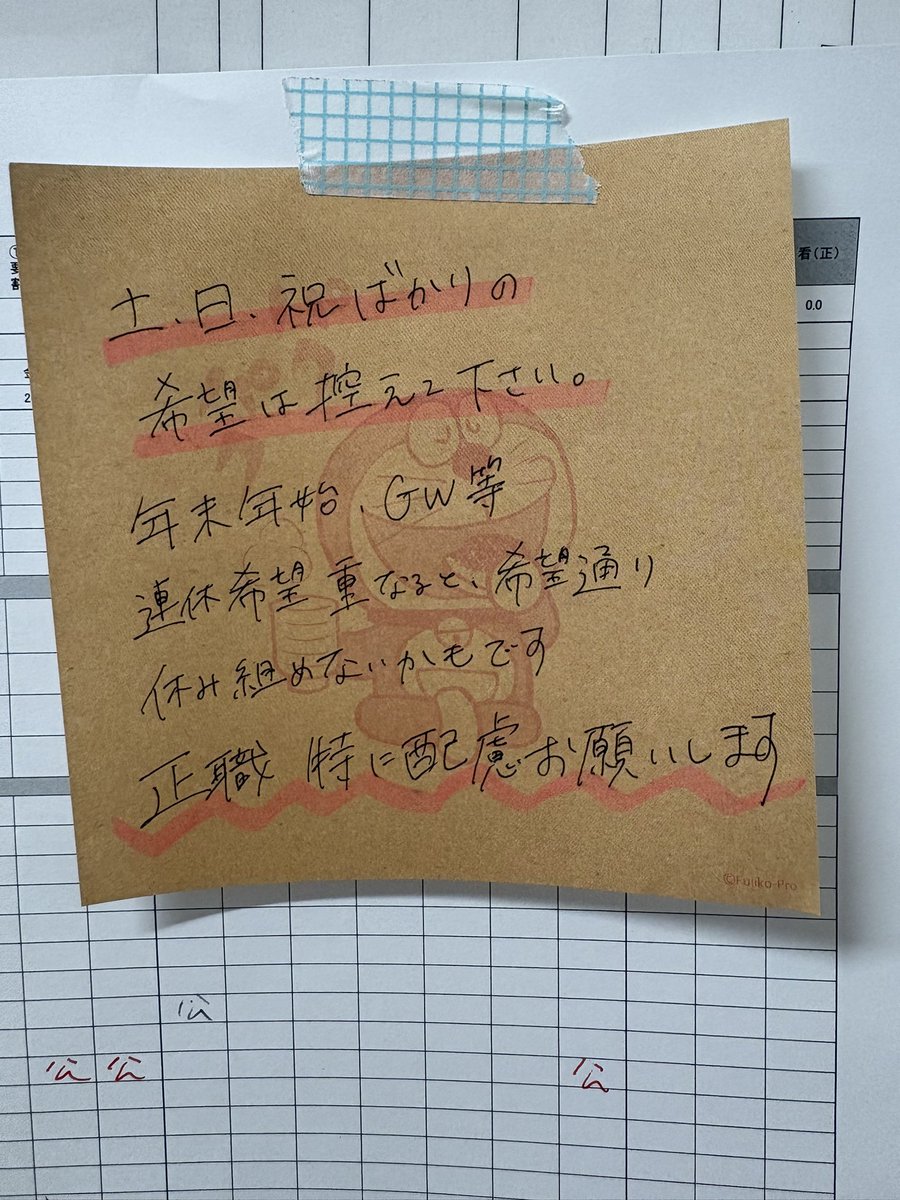 土、日、祝ばかりの
希望は控えて下さい。
年末年始、GW等
連休希望重なると、希望通り
休み組めないかもです
正職 特に配慮お願いします
©Fujiko-Pro
看(正)
0.0
公
公 公 公